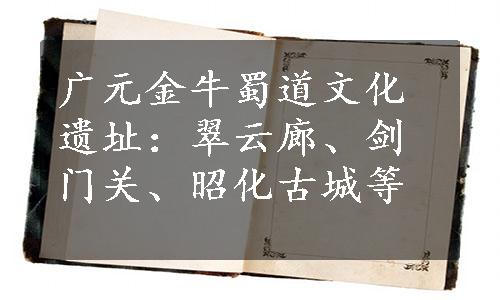 广元金牛蜀道文化
遗址：翠云廊、剑
门关、昭化古城等